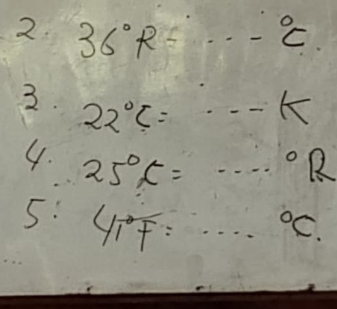 2. 36°R = ... °C.
3. 22°C = ... K
4. 25°C = .... °R
5. 41°F = .... °C.